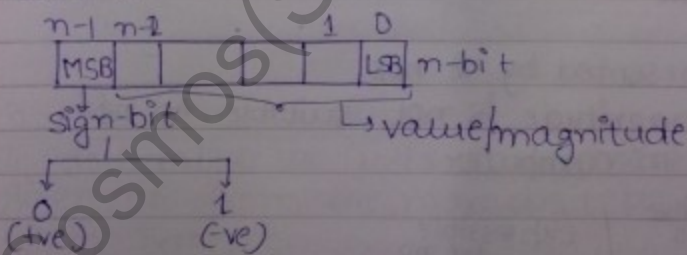 n-1 n-2 1 0
MSB LSB n-bit
sign-bit
value/magnitude
0 1
(+ve) (-ve)
cosmos(